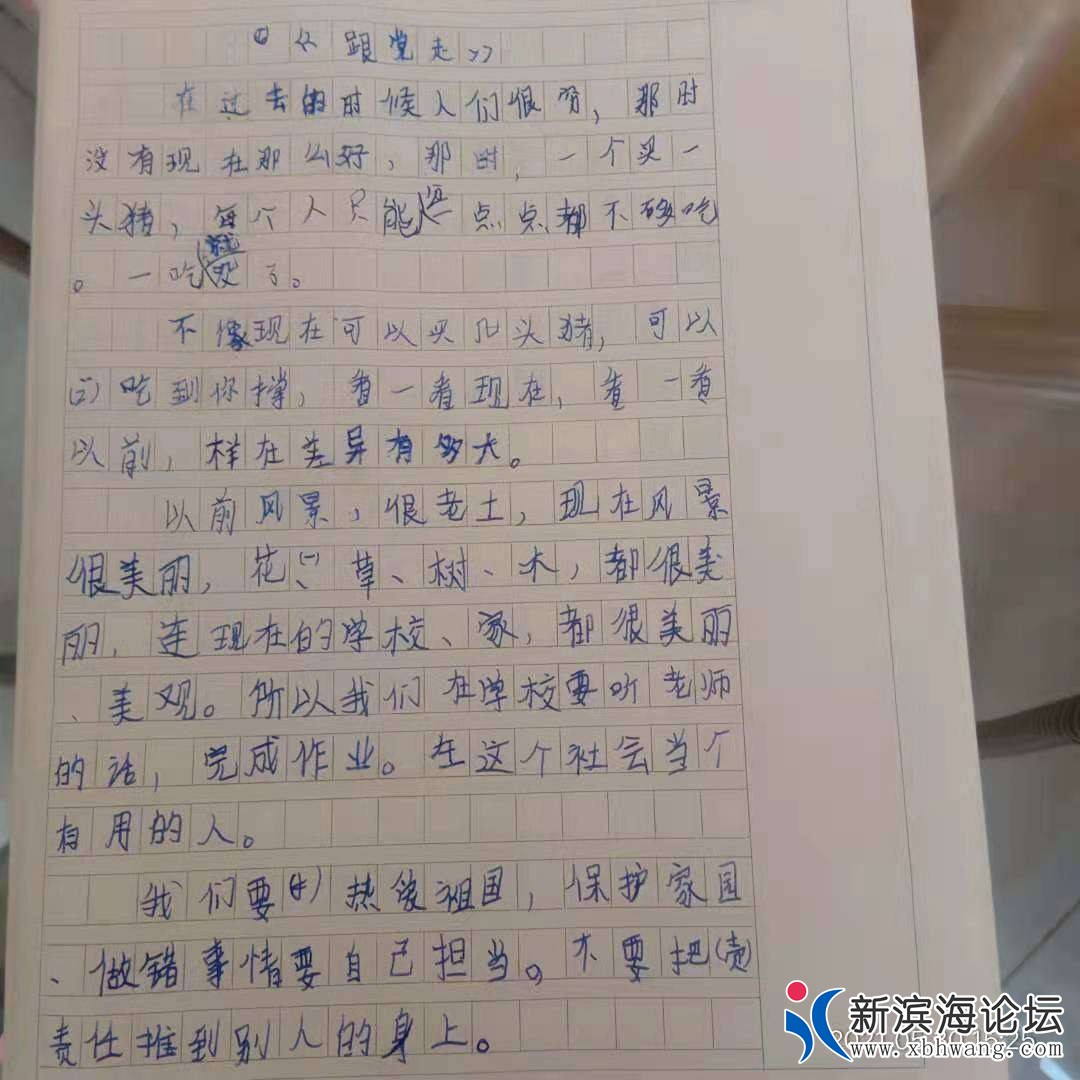 《跟党走》
在过去的时候人们很穷，那时
没有现在那么好，那时，一个买一
头猪，每个人只能 点点都不够吃
。一吃就没了。
不像现在可以买几头猪，可以
吃到你撑，看一看现在，看一看
以前，样在差异有多大。
以前风景，很老土，现在风景
很美丽，花、草、树、木，都很美
丽，连现在的学校、家，都很美丽
、美观。所以我们在学校要听老师
的话，完成作业。在这个社会当个
有用的人。
我们要热爱祖国，保护家国
、做错事情要自己担当。不要把
责任推到别人的身上。
新滨海论坛
www.xbhwang.com